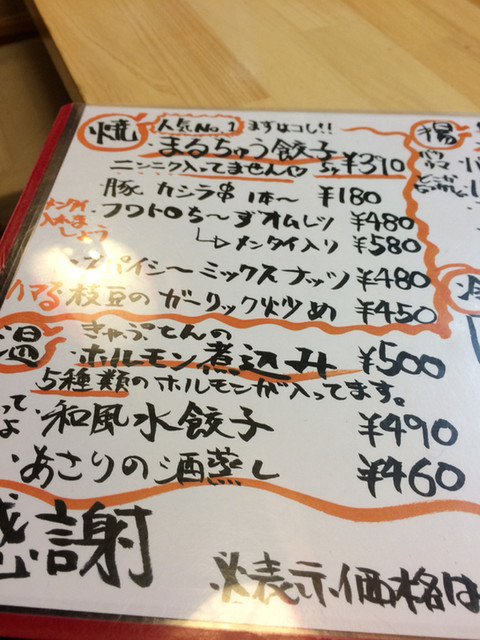 焼 人気No.1 まずはコレ!!
・まるちゅう餃子 5ヶ ¥390
ニンニク入ってません
・豚カシラ串 1本〜 ¥180
メンタイ入れましょう
・フワトロち〜ずオムレツ ¥480
↳メンタイ入り ¥580
スパイシ〜ミックスナッツ ¥480
ハマる 枝豆のガーリック炒め ¥450
揚
温 きゃぷてんの
・ホルモン煮込み ¥500
5種類のホルモンが入ってます。
・和風水餃子 ¥490
・あさりの酒蒸し ¥460
感謝
※表示価格は